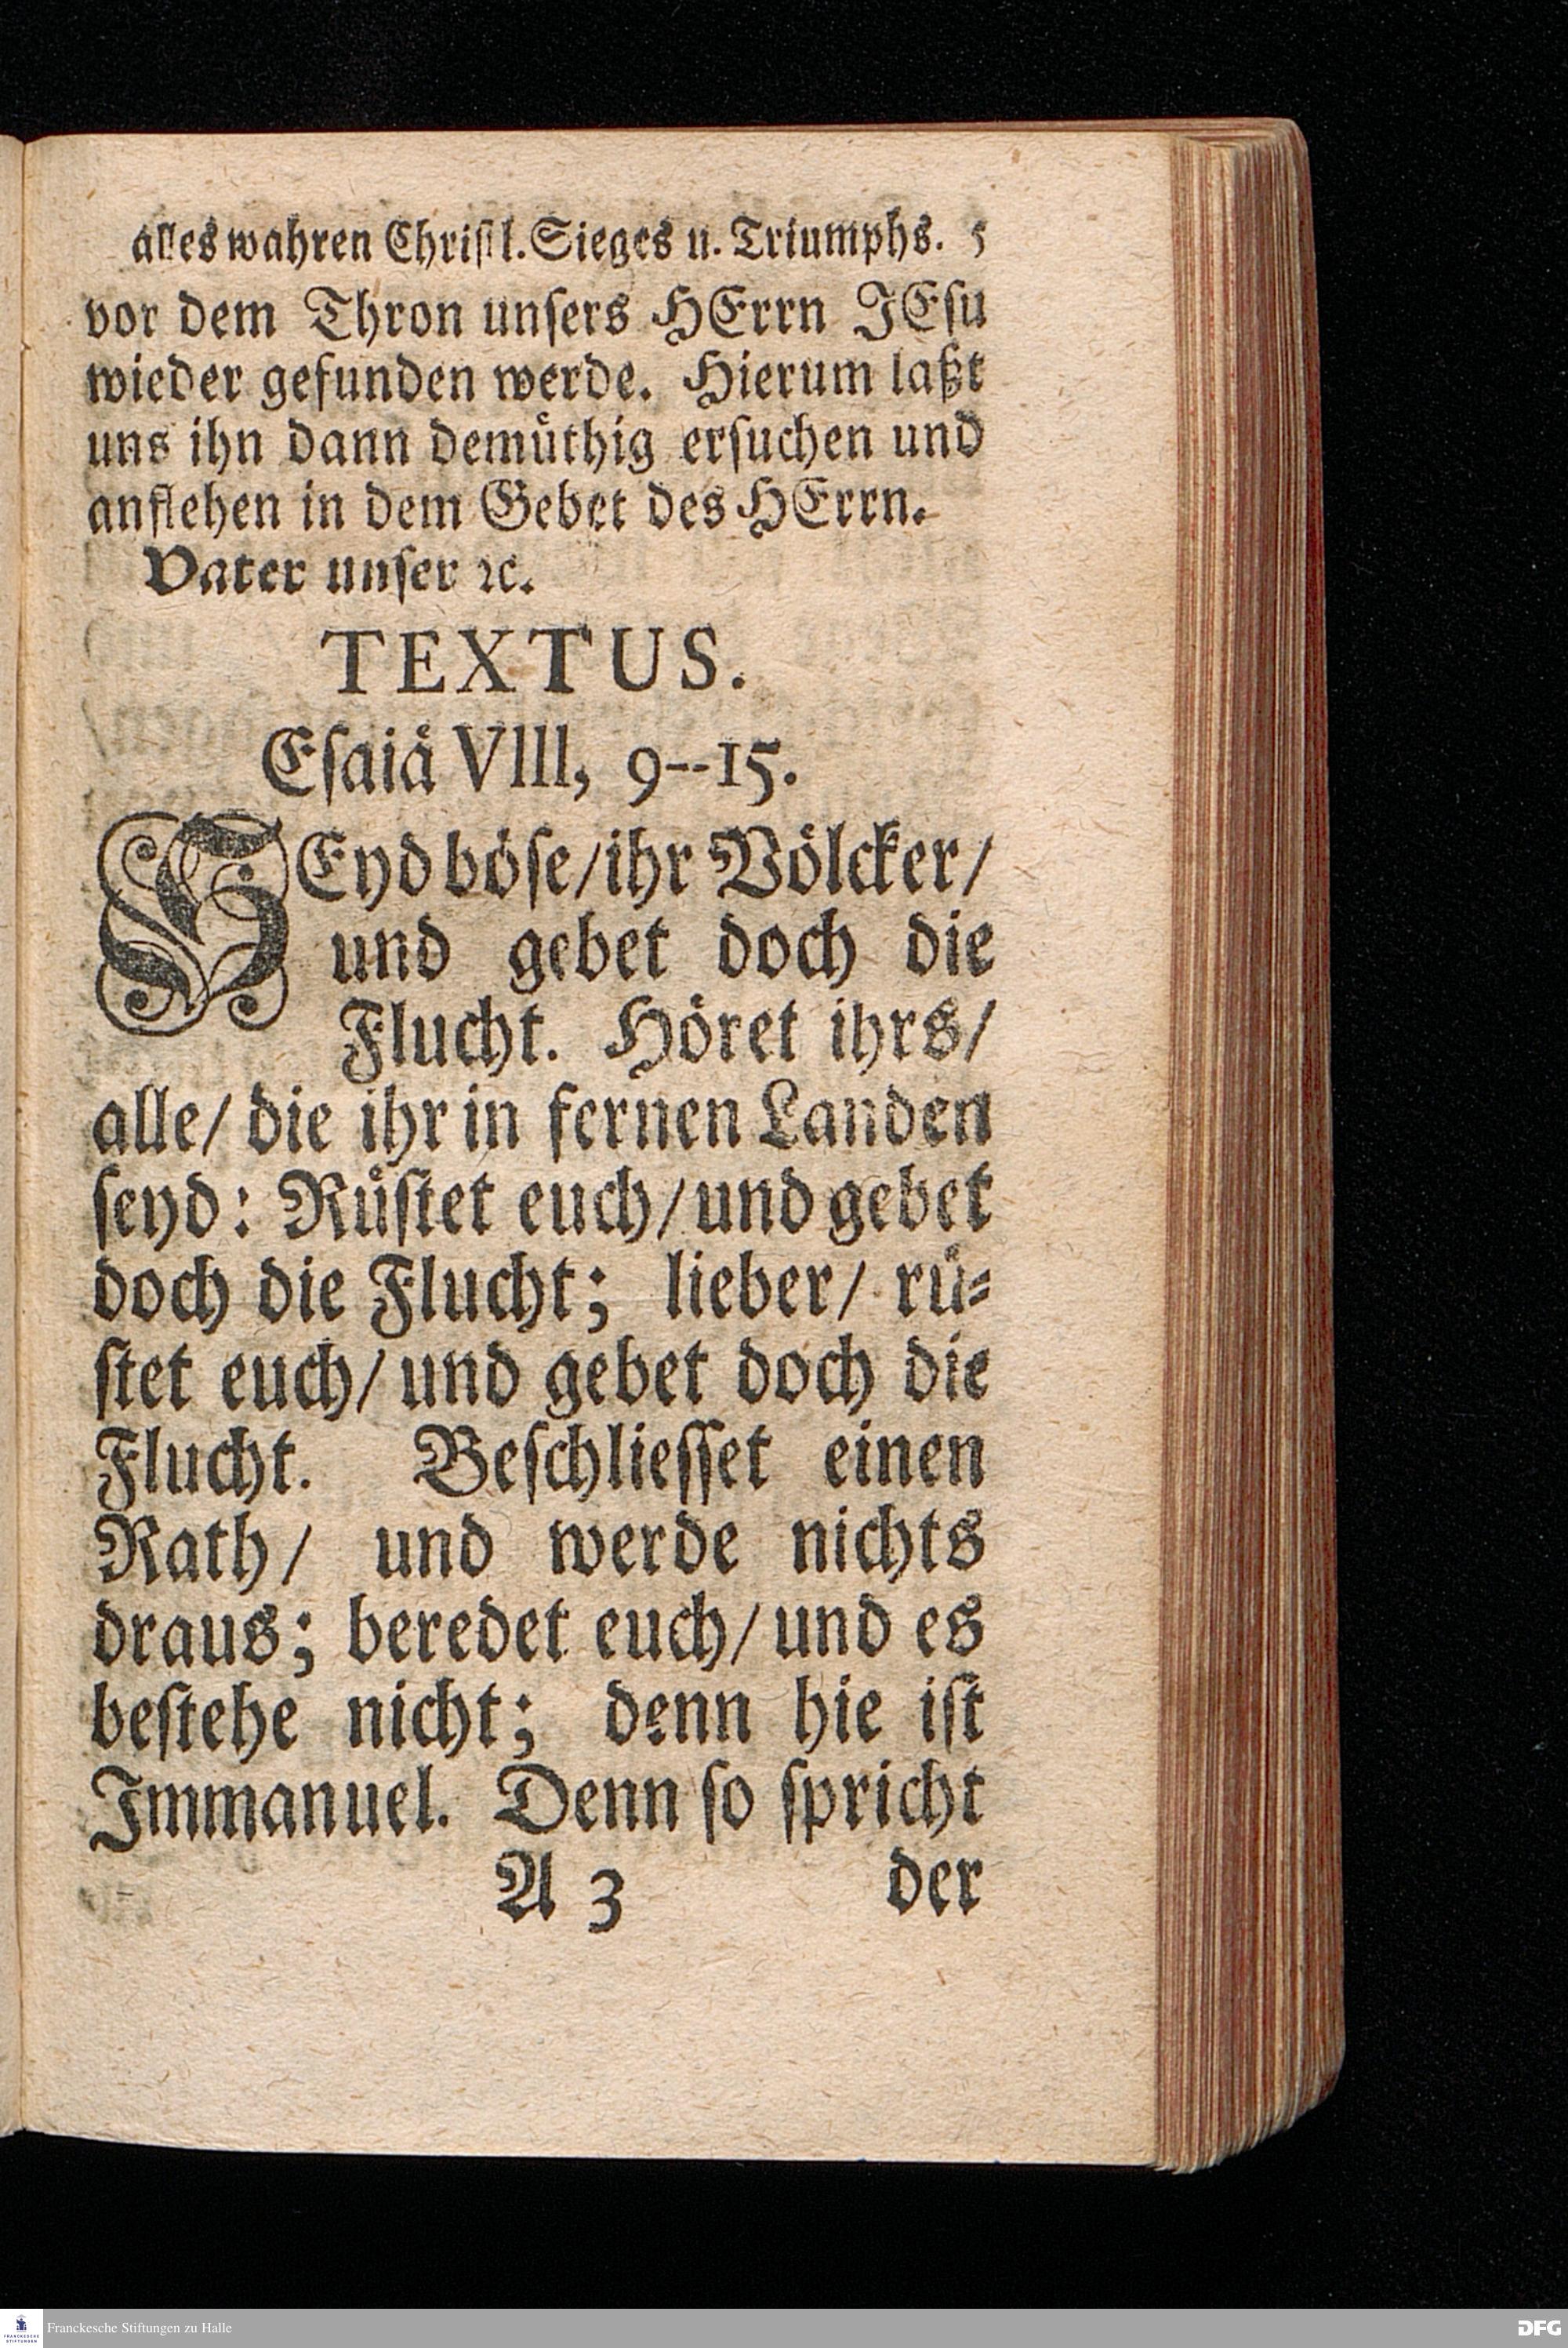 alles wahren Christl. Sieges u. Triumphs. 5
vor dem Thron unsers HErrn JEsu
wieder gefunden werde. Hierum laßt
uns ihn dann demüthig ersuchen und
anflehen in dem Gebet des HErrn.
Vater unser ꝛc.
TEXTUS.
Esaiä VIII, 9--15.
SEyd böse/ ihr Völcker/
und gebet doch die
Flucht. Höret ihrs/
alle/ die ihr in fernen Landen
seyd: Rüstet euch/ und gebet
doch die Flucht; lieber/ rü-
stet euch/ und gebet doch die
Flucht. Beschliesset einen
Rath/ und werde nichts
draus; beredet euch/ und es
bestehe nicht; denn hie ist
Immanuel. Denn so spricht
A 3 der
Franckesche Stiftungen zu Halle
FRANCKESCHE
STIFTUNGEN
DFG